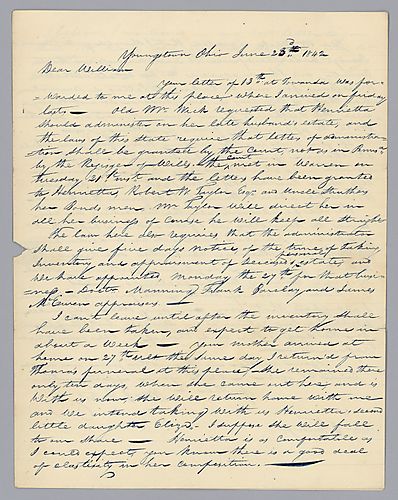 Youngstown Ohio June 25th 1842
Dear William
Your letter of 13th at Towanda was for-
-warded to me at this place where I arrived on friday
last - Old Mr. Wick requested that Henrietta
should administer on her late husbands estate, and
the laws of this State require that letters of administra-
-tion shall be granted by the Court, not as in Penna
by the Register of Wills. the Court met in Warren on
tuesday 21st inst and the letters have been granted
to Henrietta, Robert W Taylor Esqr and Uncle
her Bonds men Mr Taylor will direct her in
all her business of Course he will keep all straight
the law here also requires that the administrator
shall give five days notice of the time of taking
Inventory and appraisement of deceased personal estate, and
we have appointed Monday the 27th for that busi-
-ness. - Doctr Manning Frank Barclay and James
McEwen appraisers -
I cant leave until after the inventory shall
have been taken, and expect to get home in
about a week - your mother arrived at
home on 27th ulto the same day I return'd from
funeral at this place. She remained there
only ten days, when she came out here and is
with us now, she will return home with me
and we intend taking with us Henrietta second
little daughter Eliza - I suppose she will fall
to our share - Henrietta is as comfortable as
I could expect, you know there is a good deal
of elasticity in her composition. -